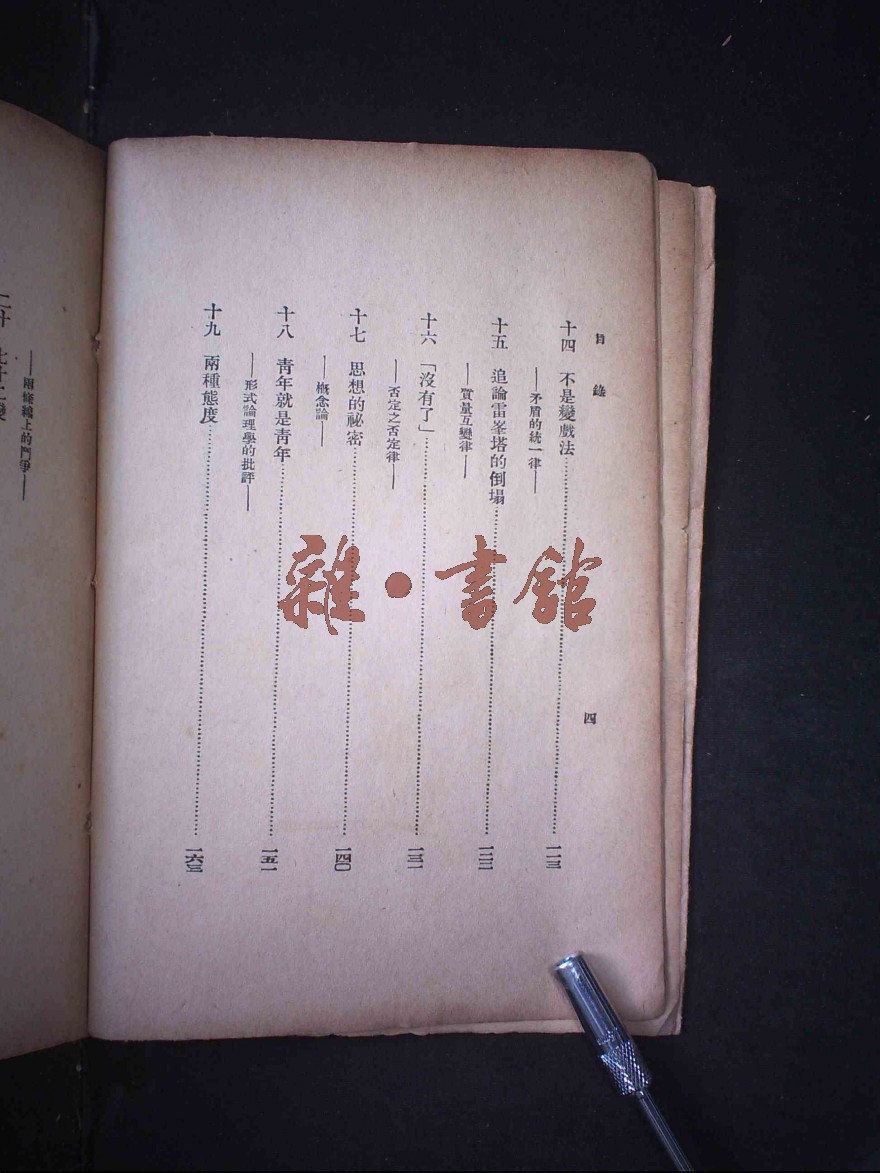 目錄
四
十四 不是變戲法……一一三
——矛盾的統一律——
十五 追論雷峯塔的倒塌……一二二
——質量互變律——
十六 「沒有了」……一三一
——否定之否定律——
十七 思想的祕密……一四〇
——概念論——
十八 青年就是青年……一五一
——形式論理學的批評——
十九 兩種態度……一六三
二十 七十二變
——兩條線上的鬥爭——
雜·書館